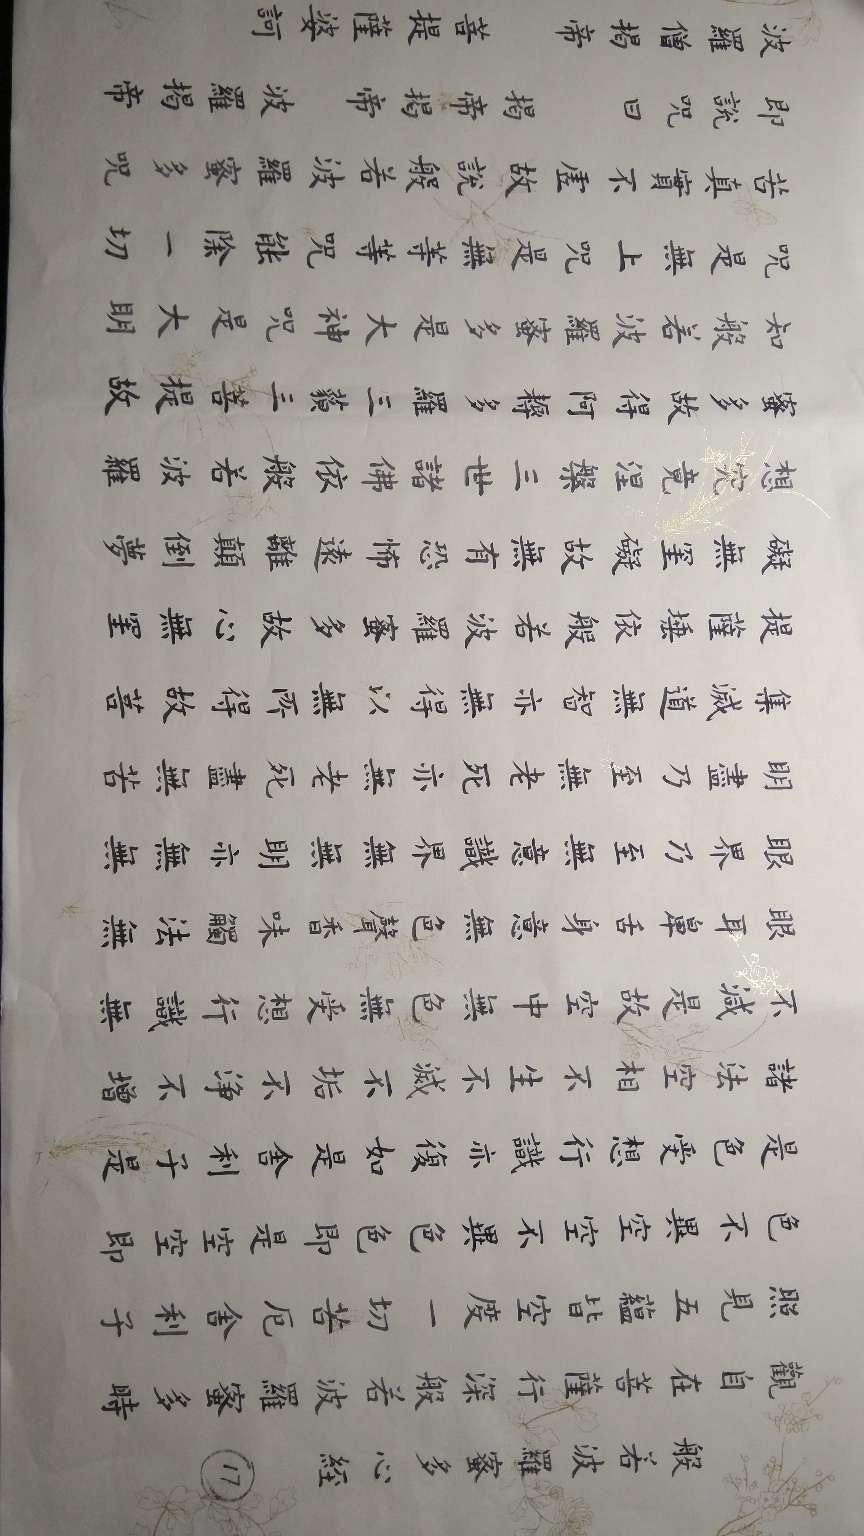 般若波羅蜜多心経 17
觀自在菩薩行深般若波羅蜜多時
照見五蘊皆空度一切苦厄舍利子
色不異空空不異色色即是空空即
是色受想行識亦復如是舍利子是
諸法空相不生不滅不垢不淨不增
不減是故空中無色無受想行識無
眼耳鼻舌身意無色聲香味觸法無
眼界乃至無意識界無無明亦無無
明盡乃至無老死亦無老死盡無苦
集滅道無智亦無得以無所得故菩
提薩埵依般若波羅蜜多故心無罣
礙無罣礙故無有恐怖遠離顛倒夢
想究竟涅槃三世諸佛依般若波羅
蜜多故得阿耨多羅三藐三菩提故
知般若波羅蜜多是大神咒是大明
咒是無上咒是無等等咒能除一切
苦真實不虛故說般若波羅蜜多咒
即說咒曰 揭帝揭帝 波羅揭帝
波羅僧揭帝 菩提薩婆訶